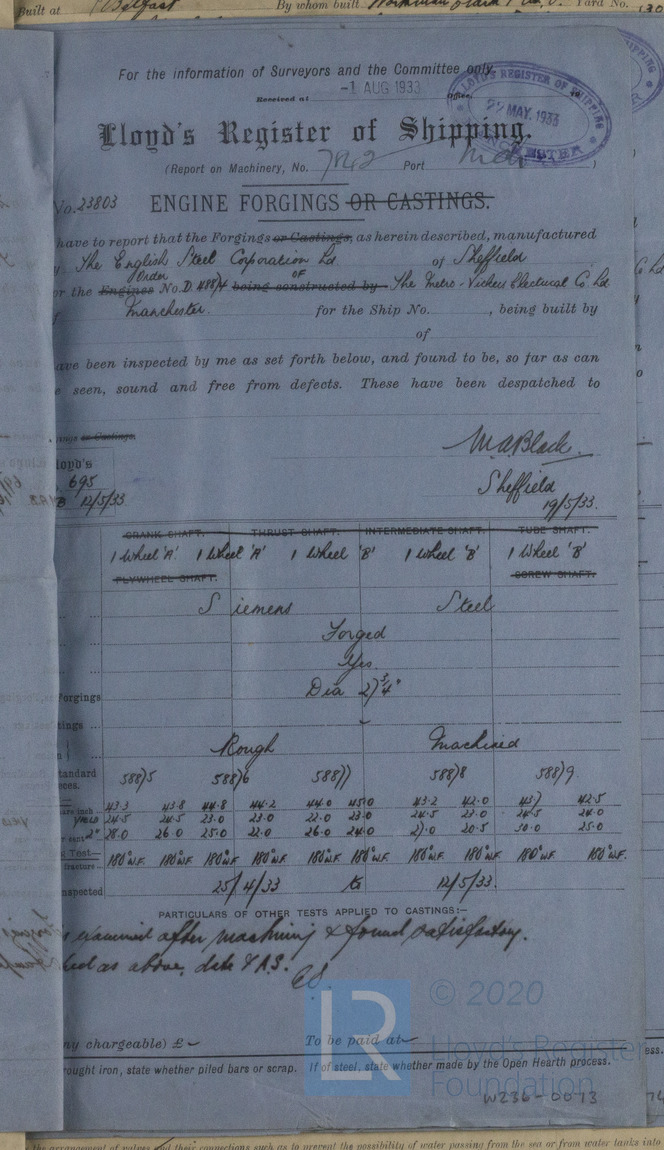 Built at Belfast By whom built Workman Clark Yard No.
For the information of Surveyors and the Committee only.
Received at -1 AUG 1933 Office
LLOYD'S REGISTER OF SHIPPING
29 MAY. 1933
MANCHESTER
Lloyd's Register of Shipping.
(Report on Machinery, No. 7842 Port Mchr )
No. 23803 ENGINE FORGINGS OR CASTINGS.
have to report that the Forgings or Castings, as herein described, manufactured
The English Steel Corporation Ld of Sheffield
Order OF
or the Engines No. D 488/4 being constructed by The Metro-Vickers Electrical Co Ld
Manchester. for the Ship No. , being built by
of
ave been inspected by me as set forth below, and found to be, so far as can
e seen, sound and free from defects. These have been despatched to
ings or Castings.
loyd's
695
B 12/5/33
M.A. Black.
Sheffield
19/5/33.
CRANK SHAFT. THRUST SHAFT. INTERMEDIATE SHAFT. TUBE SHAFT.
1 Wheel 'A'. 1 Wheel 'A' 1 Wheel 'B' 1 Wheel 'B' 1 Wheel 'B'
FLYWHEEL SHAFT. SCREW SHAFT.
Siemens Steel
Forged
Yes.
Forgings Dia 27 3/4"
tings ...
Rough Machined
tandard 588/5 588/6 588/7 588/8 588/9
eces.
are inch 43.3 43.8 44.8 44.2 44.0 45.0 43.2 42.0 43.7 42.5
YIELD 24.5 24.5 23.0 23.0 22.0 23.0 24.5 23.0 24.5 24.0
2" 28.0 26.0 25.0 22.0 26.0 24.0 27.0 20.5 30.0 25.0
g Test— 180°U.F. 180°U.F. 180°U.F. 180°U.F. 180°U.F. 180°U.F. 180°U.F. 180°U.F. 180°U.F. 180°U.F.
fracture
nspected 25/4/33 to 12/5/33.
PARTICULARS OF OTHER TESTS APPLIED TO CASTINGS:—
examined after machining & found satisfactory.
as above, date & A.S.
ny chargeable) £ To be paid at
rought iron, state whether piled bars or scrap. If of steel, state whether made by the Open Hearth process.
LR
© 2020
Lloyd's Register
Foundation
W236-0073
the arrangement of valves and their connections such as to prevent the possibility of water passing from the sea or from water tanks into